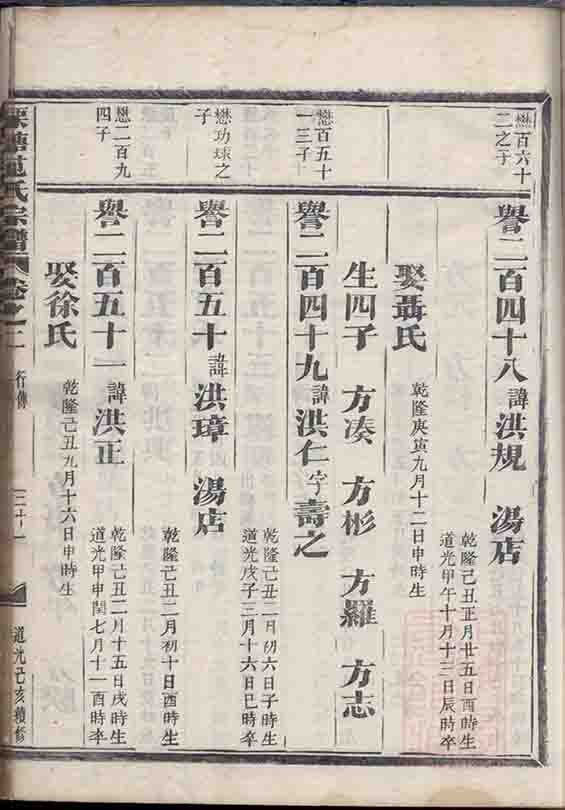 懋百六十
二之子
譽二百四十八 諱洪規 湯店
乾隆己丑正月廿五日酉時生
道光甲午十月十三日辰時卒
娶聶氏
乾隆庚寅九月十二日申時生
生四子 方湊 方彬 方羅 方志
懋百五十
一三子
譽二百四十九 諱洪仁 字壽之
乾隆己丑二月初六日子時生
道光戊子三月十六日巳時卒
懋功球之
子
譽二百五十 諱洪璋 湯店
乾隆己丑二月初十日酉時生
懋二百九
四子
譽二百五十一 諱洪正
乾隆己丑二月十五日戌時生
道光甲申閏七月十一酉時卒
娶徐氏
乾隆己丑九月十六日申時生
范氏宗譜 卷之二 行傳 三十一 道光己亥續修